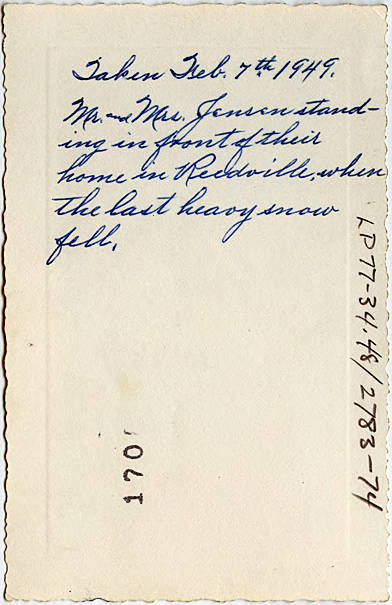 Taken Feb. 7th 1949.
Mr. and Mrs. Jensen stand-
ing in front of their
home in Reedville, when
the last heavy snow
fell.
LP77-34.48/2783-74
170